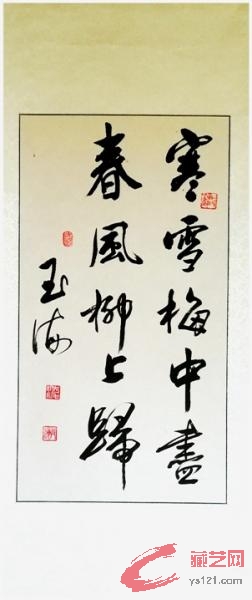 寒雪梅中盡
春風柳上歸
玉海
藏艺网
ys121.com